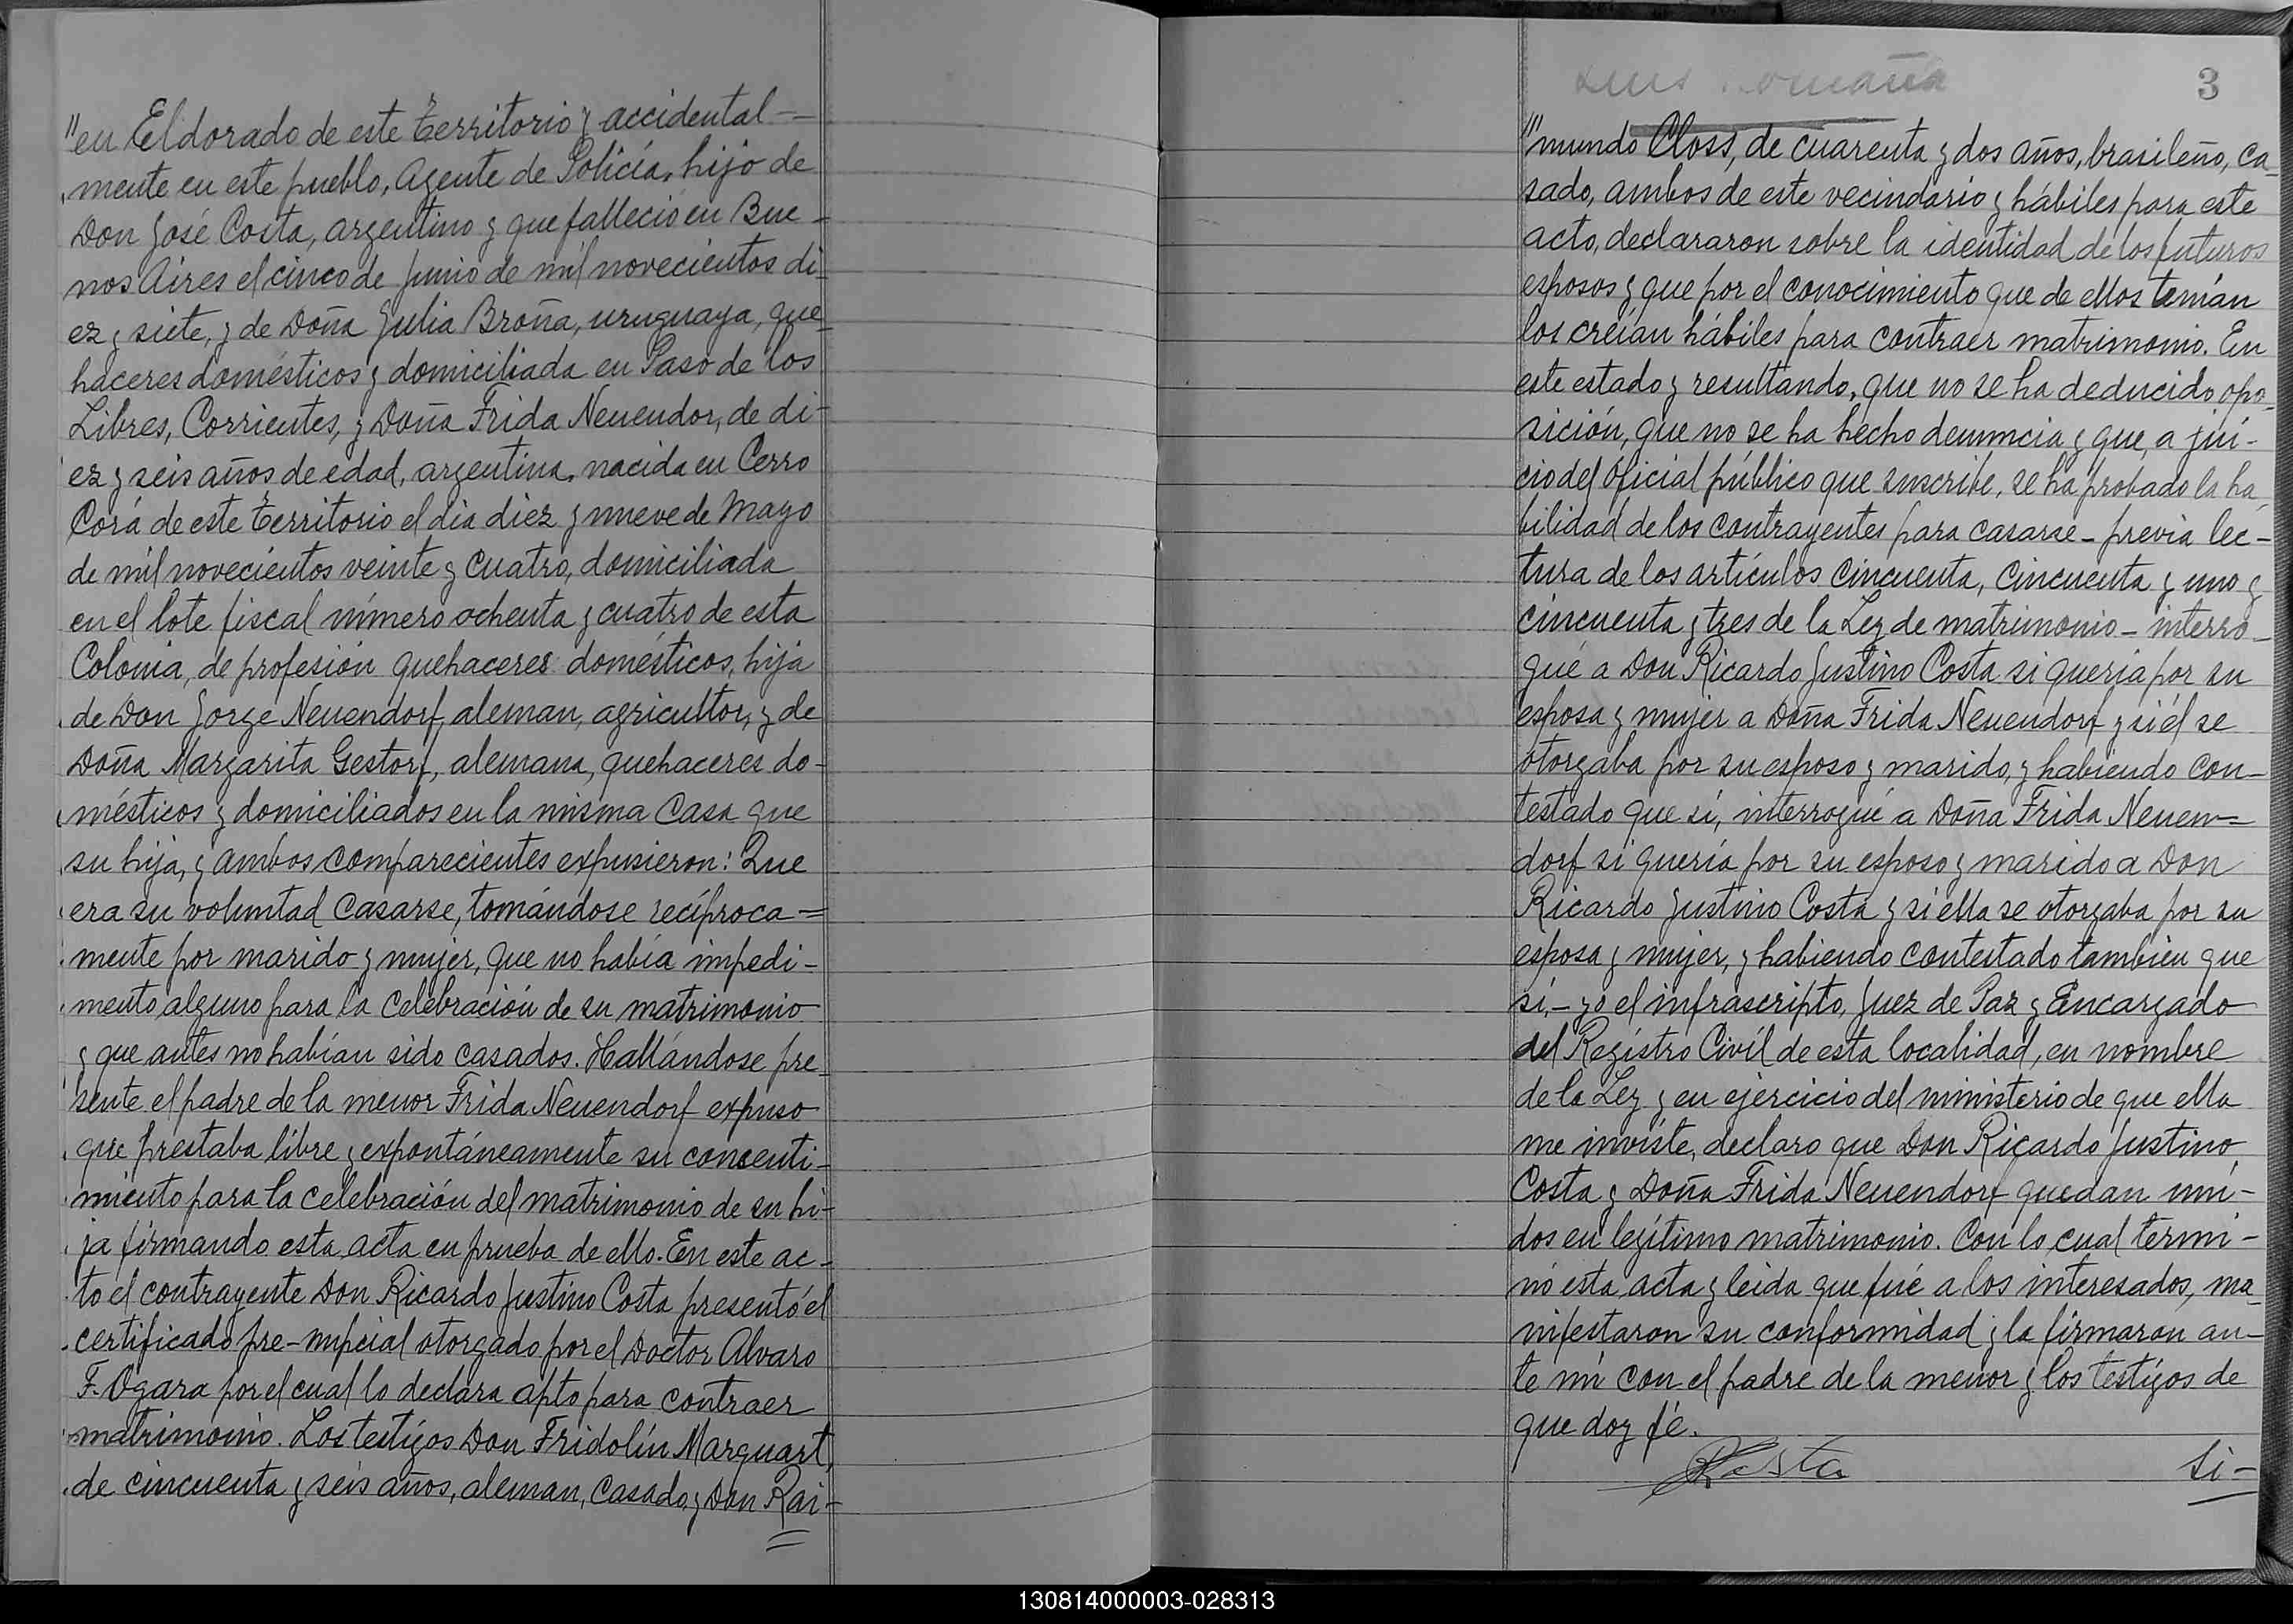 "en Eldorado de este territorio y accidental-
mente en este pueblo, Agente de Policía, hijo de
Don José Costa, argentino y que falleció en Bue-
nos Aires el cinco de Junio de mil novecientos di-
ez y siete, y de Doña Julia Broña, uruguaya, que-
haceres domésticos y domiciliada en Paso de los
Libres, Corrientes, y Doña Frida Neuendor, de di-
ez y seis años de edad, argentina, nacida en Cerro
Corá de este territorio el dia diez y nueve de Mayo
de mil novecientos veinte y cuatro, domiciliada
en el lote fiscal número ochenta y cuatro de esta
Colonia, de profesión quehaceres domésticos, hija
de Don Jorge Neuendorf, aleman, agricultor, y de
Doña Margarita Gestorf, alemana, quehaceres do-
mésticos y domiciliados en la misma casa que
su hija, y ambos comparecientes expusieron: Que
era su voluntad casarse, tomándose recíproca=
mente por marido y mujer, que no había impedi-
mento alguno para la celebración de su matrimonio
y que antes no habían sido casados. Hallándose pre-
sente el padre de la menor Frida Neuendorf expuso
que prestaba libre y expontáneamente su consenti-
miento para la celebración del matrimonio de su hi-
ja firmando esta acta en prueba de ello. En este ac-
to el contrayente Don Ricardo Justino Costa presentó el
certificado pre-nupcial otorgado por el Doctor Alvaro
F. Ogara por el cual lo declara apto para contraer
matrimonio. Los testigos Don Fridolín Marquart,
de cincuenta y seis años, aleman, casado, y Don Rai-
3
"'mundo Closs, de cuarenta y dos años, brasileño, ca-
sado, ambos de este vecindario y hábiles para este
acto, declararon sobre la identidad de los futuros
esposos y que por el conocimiento que de ellos tenían
los creían hábiles para contraer matrimonio. En
este estado y resultando, que no se ha deducido opo-
sición, que no se ha hecho denuncia y que, a jui-
cio del óficial público que suscribe, se ha probado la ha
bilidad de los contrayentes para casarse - previa lec-
tura de los artículos cincuenta, cincuenta y uno y
cincuenta y tres de la Ley de matrimonio - interro-
gué a Don Ricardo Justino Costa si quería por su
esposa y mujer a Doña Frida Neuendorf y si él se
otorgaba por su esposo y marido, y habiendo con-
testado que sí, interrogué a Doña Frida Neuen=
dorf si quería por su esposo y marido a Don
Ricardo Justino Costa y si ella se otorgaba por su
esposa y mujer, y habiendo contestado tambien que
sí, - yo el infrascripto, Juez de Paz y Encargado
del Registro Civil de esta localidad, en nombre
de la Ley y en ejercicio del ministerio de que ella
me inviste, declaro que Don Ricardo Justino
Costa y Doña Frida Neuendorf quedan uni-
dos en legítimo matrimonio. Con lo cual termi-
nó esta acta y leida que fué a los interesados, ma-
nifestaron su conformidad y la firmaron an-
te mí con el padre de la menor y los testigos de
que doy fé.
RCosta
Si-
130814000003-028313